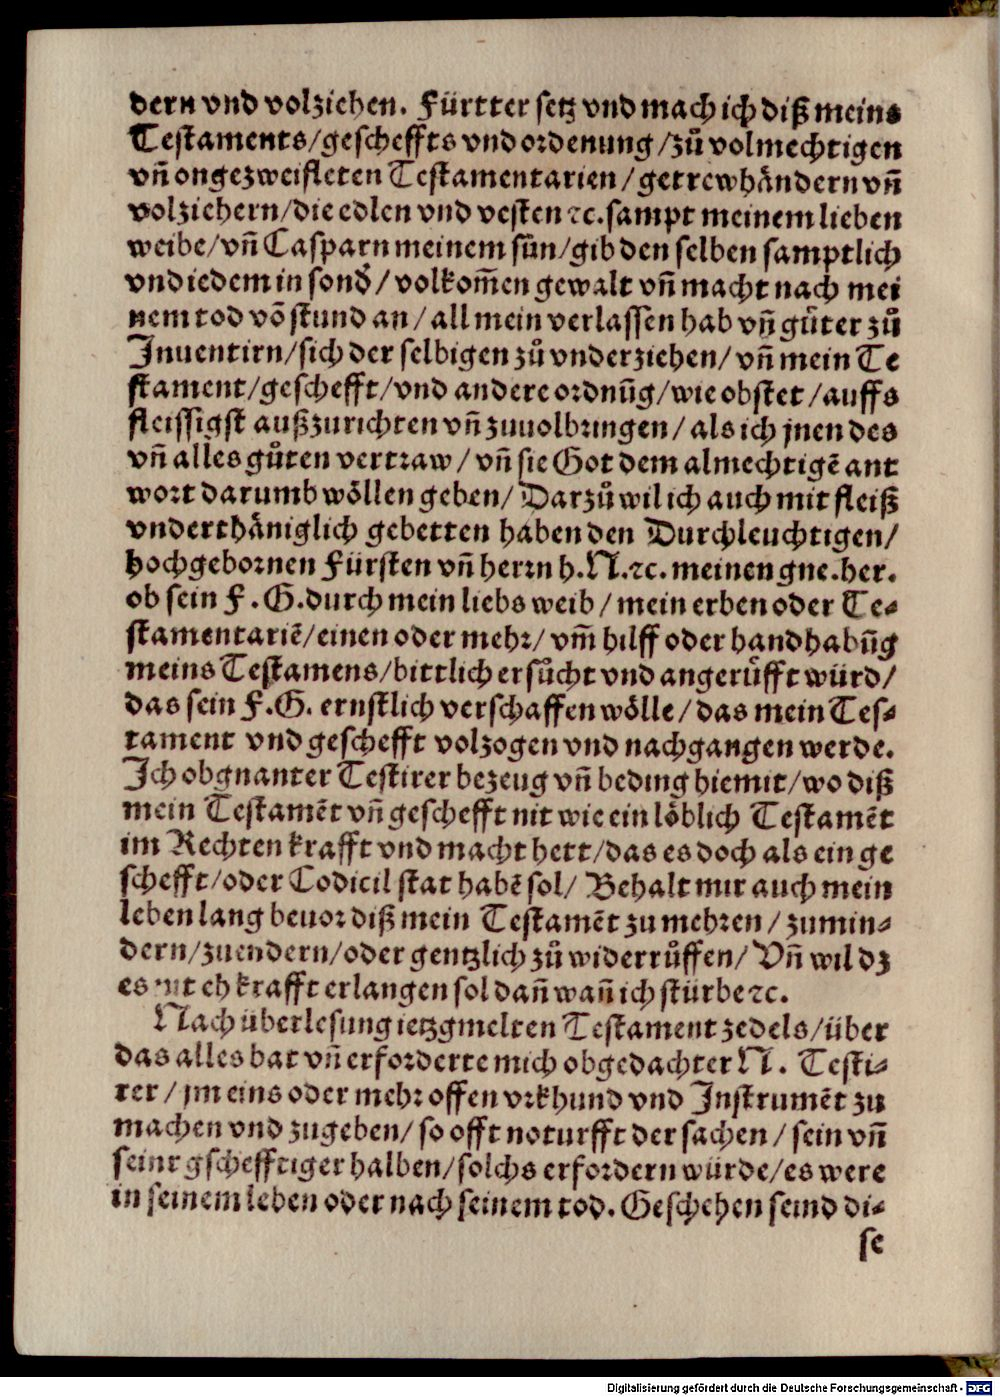 dern vnd volziehen. Fürtter setz vnd mach ich diß meins
Testaments/gescheffts vnd ordenung/zů volmechtigen
vñ ongezweifleten Testamentarien/getrewhåndern vñ
volziehern/die edlen vnd vesten ꝛc.sampt meinem lieben
weibe/vñ Casparn meinem sůn/gib den selben samptlich
vnd iedem in sond̉/volkom̃en gewalt vñ macht nach mei
nem tod võ stund an/all mein verlassen hab vñ gůter zů
Inuentirn/sich der selbigen zů vnderziehen/vñ mein Te
stament/geschefft/vnd andere ordnũg/wie obstet/auffs
fleissigst außzurichten vñ zuuolbringen/als ich jnen des
vñ alles gůten vertraw/vñ sie Got dem almechtigẽ ant
wort darumb wöllen geben/Darzů wil ich auch mit fleiß
vnderthåniglich gebetten haben den Durchleuchtigen/
hochgebornen Fürsten vñ herrn h.N.ꝛc.meinen gne.her.
ob sein F.G.durch mein liebs weib/mein erben oder Te-
stamentariẽ/einen oder mehr/vm̃ hilff oder handhabũg
meins Testamens/bittlich ersůcht vnd angerůfft würd/
das sein F.G. ernstlich verschaffen wölle/das mein Tes-
tament vnd geschefft volzogen vnd nachgangen werde.
Ich obgnanter Testirer bezeug vñ beding hiemit/wo diß
mein Testamẽt vñ geschefft nit wie ein löblich Testamẽt
im Rechten krafft vnd macht hett/das es doch als ein ge
schefft/oder Codicil stat habẽ sol/Behalt mir auch mein
leben lang beuor diß mein Testamẽt zu mehren/zumin-
dern/zuendern/oder gentzlich zů widerrůffen/Vñ wil dz
es nit eh krafft erlangen sol dañ wañ ich stürbe ꝛc.
Nach überlesung ietzgmelten Testament zedels/über
das alles bat vñ erforderte mich obgedachter N. Testi-
rer/jm eins oder mehr offen vrkhund vnd Instrumẽt zu
machen vnd zugeben/so offt noturfft der sachen/sein vñ
seinr gschefftiger halben/solchs erfordern würde/es were
in seinem leben oder nach seinem tod. Geschehen seind di-
se
Digitalisierung gefördert durch die Deutsche Forschungsgemeinschaft - DFG